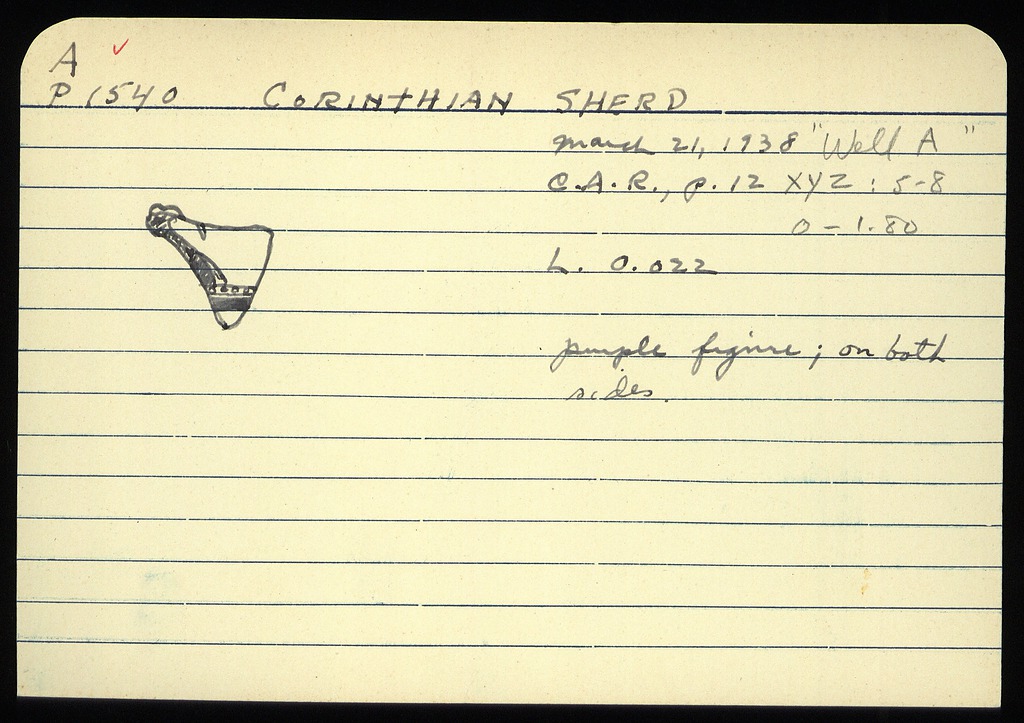 A ✓
P 1540 CORINTHIAN SHERD
March 21, 1938 "Well A"
C.A.R., p. 12 XYZ : 5-8
0 - 1.80
L. 0.022
purple figure; on both
sides.